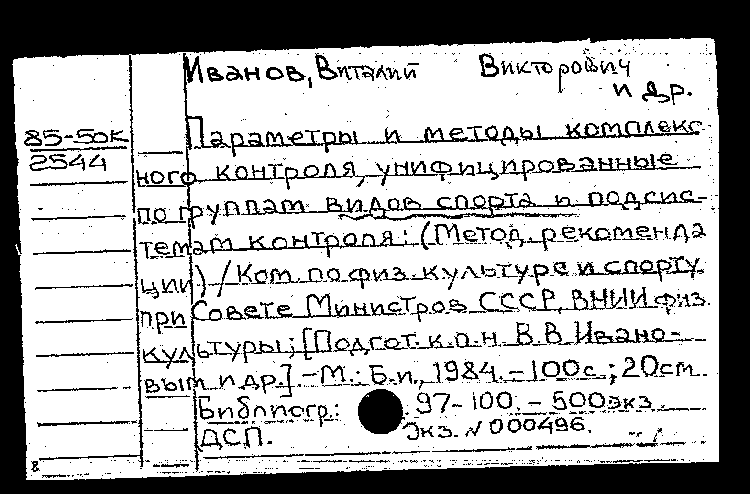 Иванов, Виталий Викторович
и др.
85-50к
2544
Параметры и методы комплекс
ного контроля, унифицированные
по группам видов спорта и подсис-
темам контроля: (Метод. рекоменда
ции) / Ком. по физ. культуре и спорту
при Совете Министров СССР, ВНИИ физ.
культуры; [Подгот. к.п.н. В.В. Ивано-
вым и др.] - М.: Б.и., 1984. - 100с.; 20см
Библиогр.: 97-100. - 500экз.
ДСП. Экз. N 000496.
8